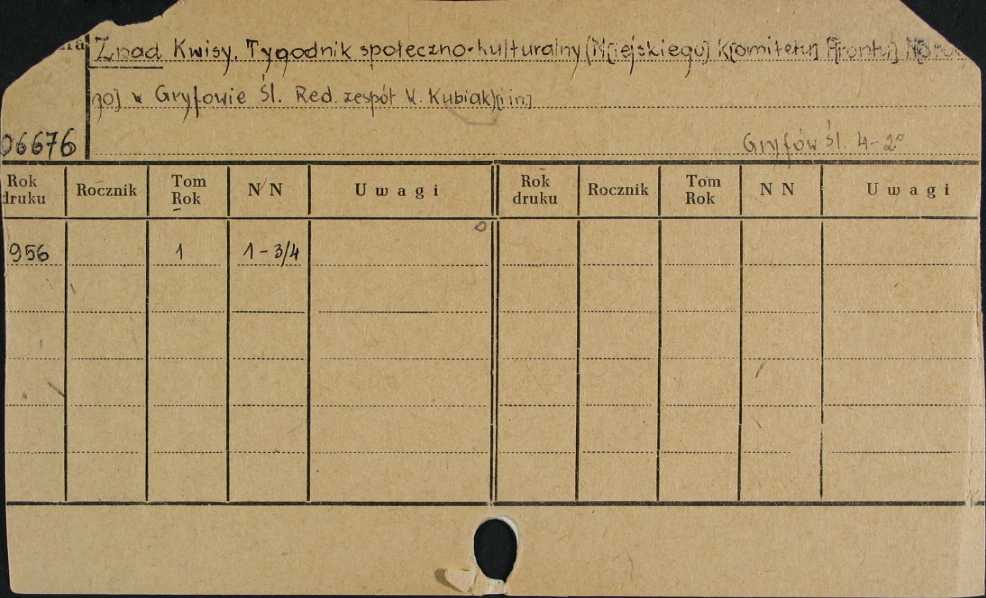 Znad Kwisy. Tygodnik społeczno-kulturalny M[iejskiego] K[omitetu] F[rontu]
go] w Gryfowie Śl. Red. zespół W. Kubiak [i in.]
06676
Gryfów Śl. 4-2°
Rok druku Rocznik Tom Rok N N Uwagi Rok druku Rocznik Tom Rok N N Uwagi
956 1 1-3/4